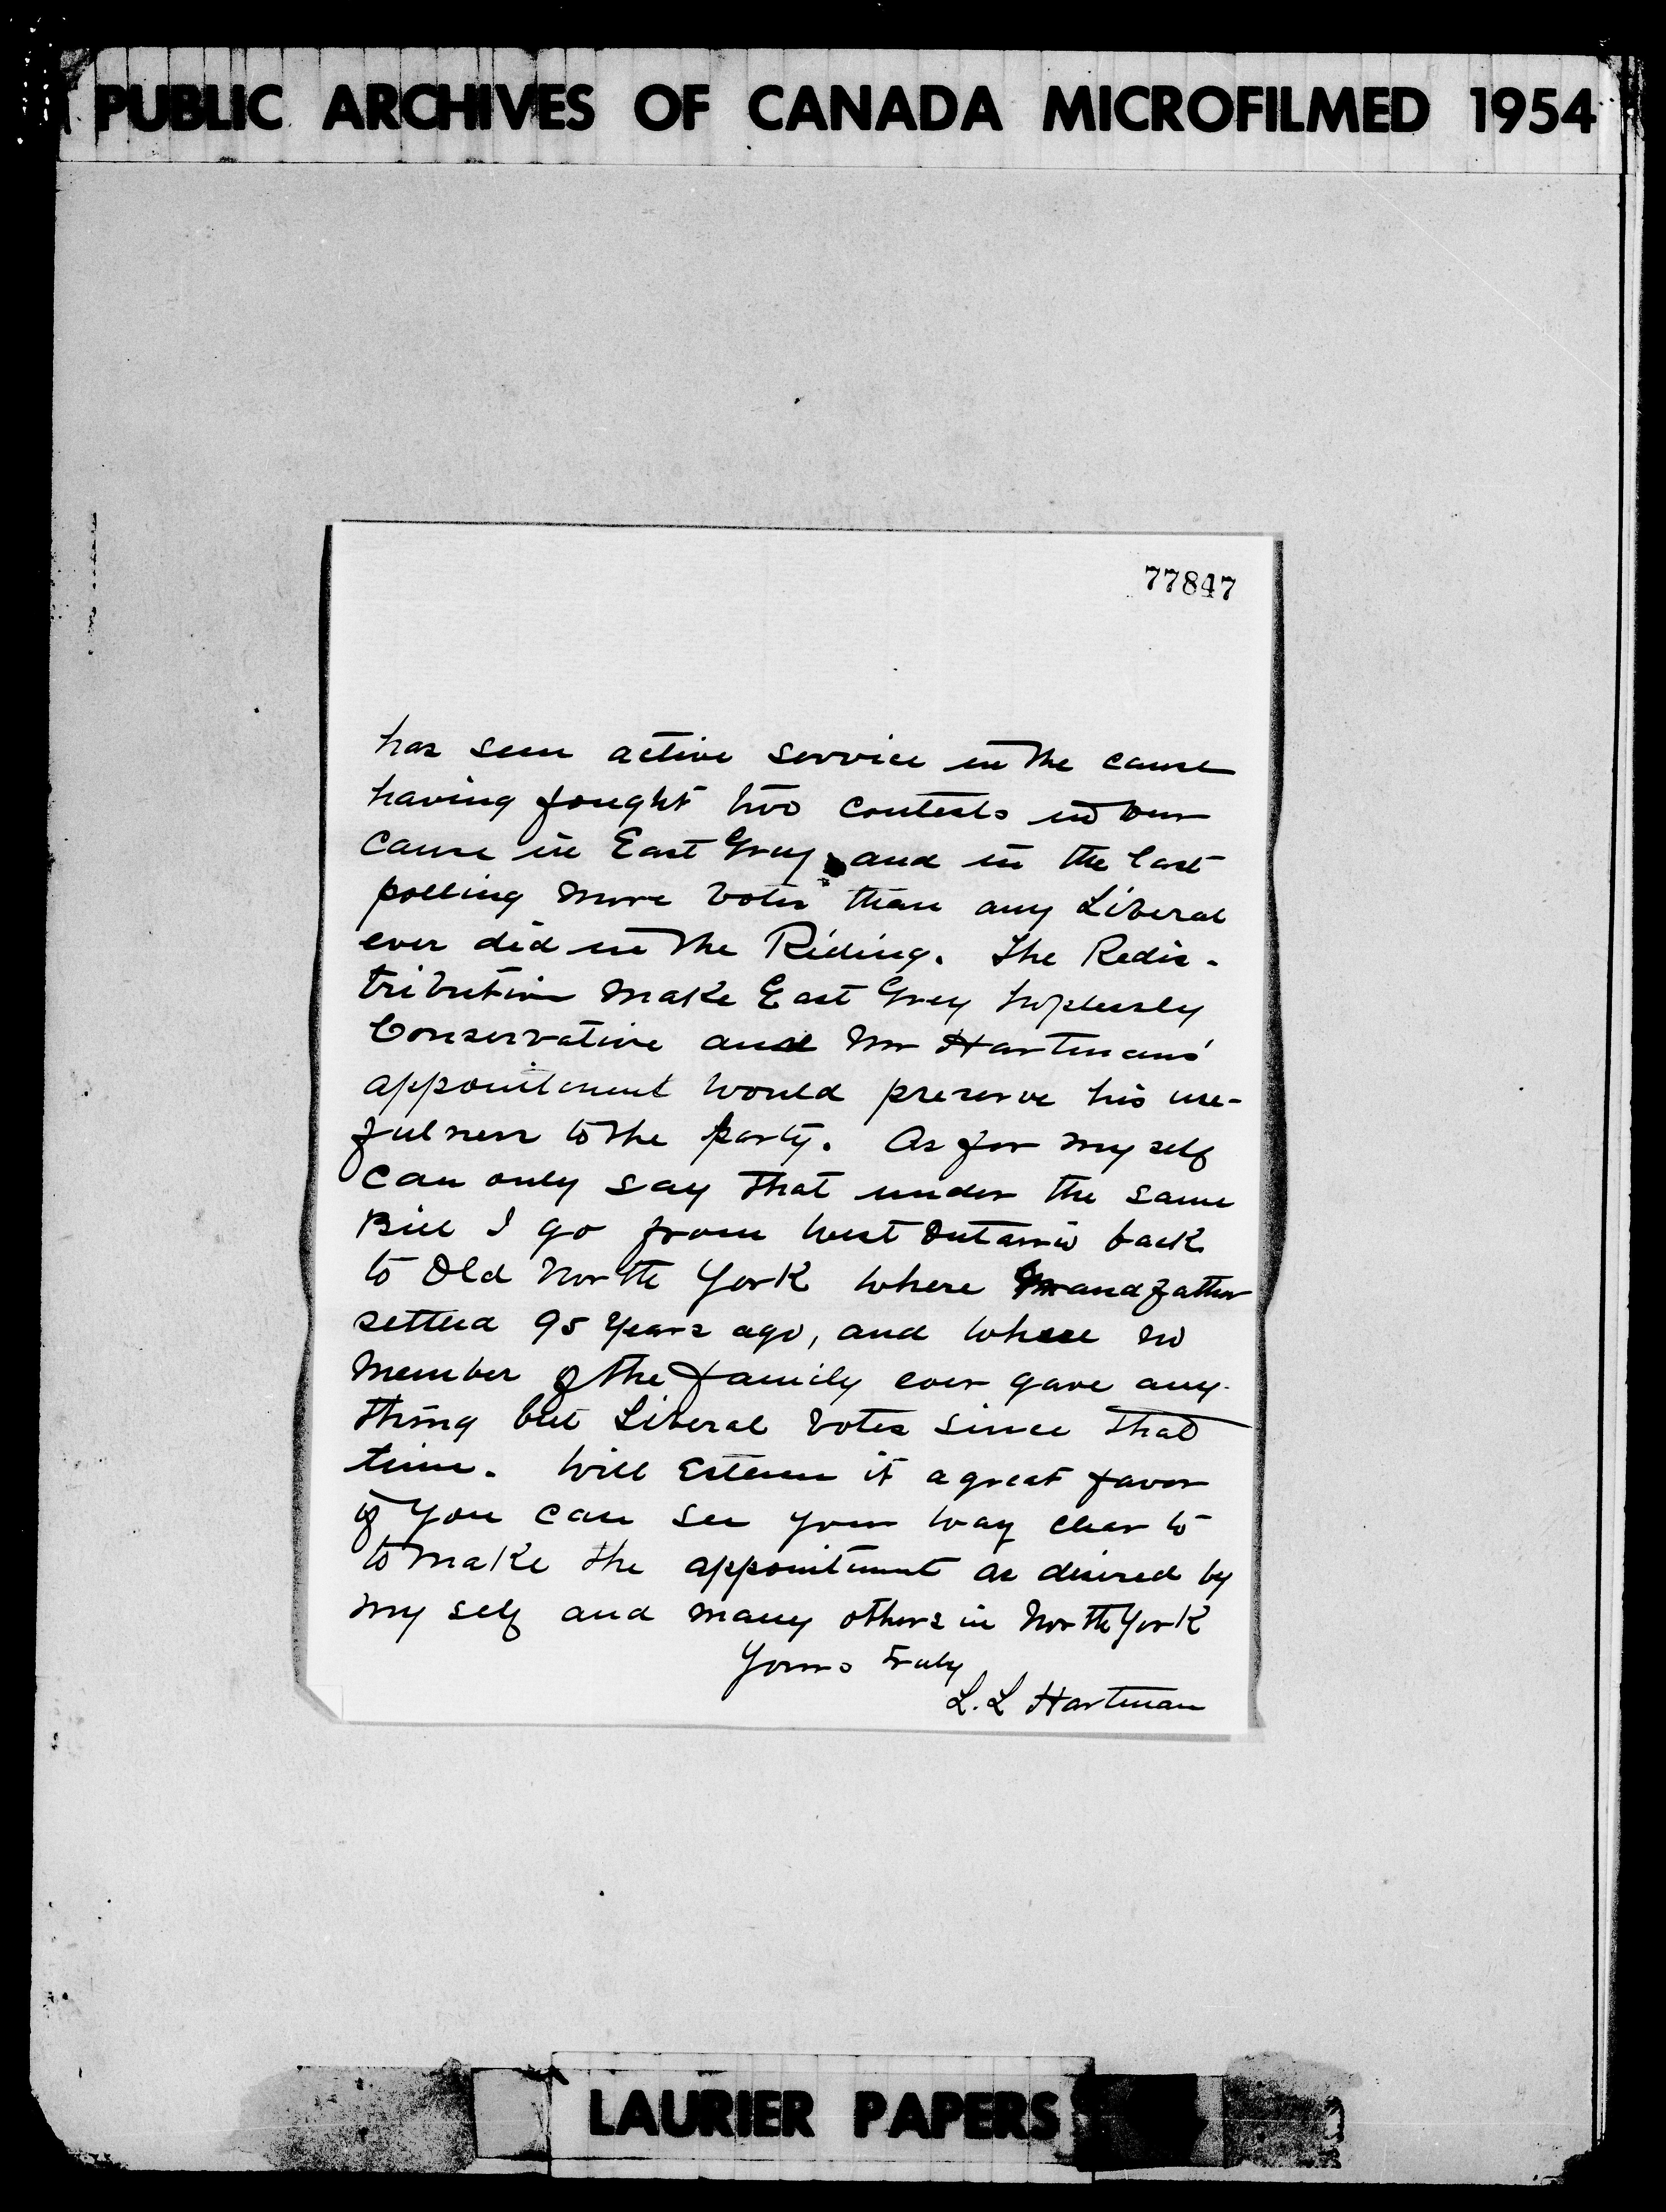 PUBLIC ARCHIVES OF CANADA MICROFILMED 1954
77847
has seen active service in the cause
having fought two contests in our
cause in East Grey and in the last
polling more votes than any Liberal
ever did in the Riding. The Redis-
tribution make East Grey hoplessly
Conservative and Mr Hartmans'
appointment would preserve his use-
fulness to the party. As for my self
can only say that under the same
Bill I go from West Ontario back
to Old North York where Grandfather
settled 95 years ago, and where no
member of the family ever gave any-
thing but Liberal votes since that
time. Will esteem it a great favor
if you can see your way clear to
to make the appointment as desired by
my self and many others in North York
Yours Truly
L. L Hartman
LAURIER PAPERS